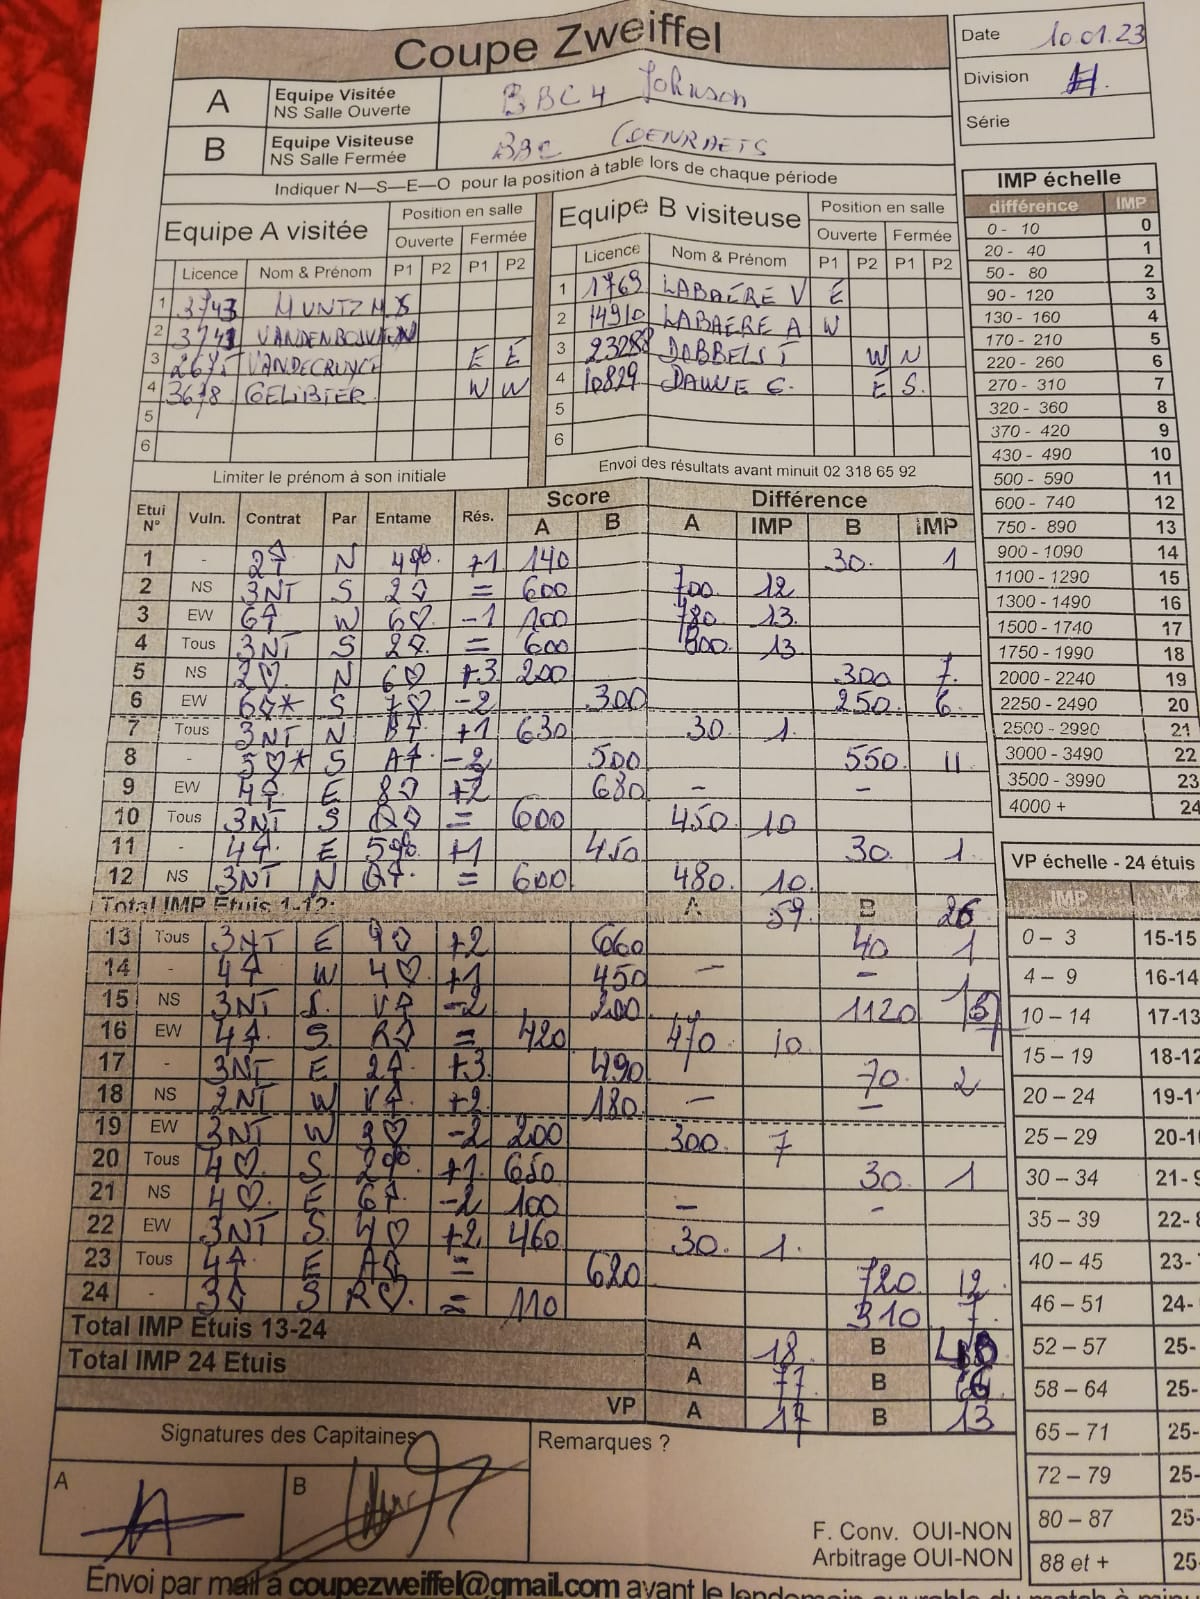 Coupe Zweiffel
Date 10.01.23
Division
Série
A Equipe Visitée NS Salle Ouverte BBC 4 Johnson
B Equipe Visiteuse NS Salle Fermée BBC COENRAETS
Indiquer N—S—E—O pour la position à table lors de chaque période
Equipe A visitée Position en salle
Ouverte Fermée
Licence Nom & Prénom P1 P2 P1 P2
1 3743 MUNTZ M S
2 3741 N
3 2675 VANDECRUYCE E E
4 3678 GELIBTER W W
5
6
Limiter le prénom à son initiale
Equipe B visiteuse Position en salle
Ouverte Fermée
Licence Nom & Prénom P1 P2 P1 P2
1 1769 LABAERE V E
2 14910 LABAERE A W
3 23288 W N
4 10829 E S.
5
6
Envoi des résultats avant minuit 02 318 65 92
Etui N° Vuln. Contrat Par Entame Rés. Score A B Différence A IMP B IMP
1 - 2♠ N 4♣ +1 140 30. 1
2 NS 3NT S 2♢ = 600 700. 12
3 EW 6♠ W 6♡ -1 100 780 13.
4 Tous 3NT S 2♠ = 600 13.
5 NS N 6♡ +3 200 300 7.
6 EW S 7♡ -2 300 250. 6
7 Tous 3NT N +1 630 30. 1.
8 - 5♡* S A♠ -2 500 550. 11
9 EW 4♠ E 8♢ +2 680 - -
10 Tous 3NT S Q♢ = 600 450. 10
11 - 4♠ E 5♣ +1 450 30. 1.
12 NS 3NT N Q♠ = 600 480. 10.
Total IMP Etuis 1-12: A 59 B 26
13 Tous 3NT E 9♢ +2 660 40 1
14 - 4♠ W 4♡ +1 450 - -
15 NS 3NT S. V♠ -2 200 1120 15
16 EW 4♠ S R♢ = 420 470 10
17 - 3NT E 2♠ +3 490 70. 2
18 NS 2NT W V♠ +2 180 - -
19 EW 3NT W 3♡ -2 200 300 7
20 Tous 4♡ S 2♣ +1 650 30 1
21 NS 4♡ E 6♠ -2 100 - -
22 EW 3NT S 4♡ +2 460 30. 1.
23 Tous 4♠ E = 620 720 12
24 - 3♠ S R♡ = 110 310 7
Total IMP Etuis 13-24 A 18. B
Total IMP 24 Etuis A 77 B
VP A 17 B 13
Signatures des Capitaines
A
B
Remarques ?
F. Conv. OUI-NON
Arbitrage OUI-NON
Envoi par mail à coupezweiffel@gmail.com avant le lendemain ouvrable du match à
IMP échelle
différence IMP
0 - 10 0
20 - 40 1
50 - 80 2
90 - 120 3
130 - 160 4
170 - 210 5
220 - 260 6
270 - 310 7
320 - 360 8
370 - 420 9
430 - 490 10
500 - 590 11
600 - 740 12
750 - 890 13
900 - 1090 14
1100 - 1290 15
1300 - 1490 16
1500 - 1740 17
1750 - 1990 18
2000 - 2240 19
2250 - 2490 20
2500 - 2990 21
3000 - 3490 22
3500 - 3990 23
4000 + 24
VP échelle - 24 étuis
IMP VP
0 – 3 15-15
4 – 9 16-14
10 – 14 17-13
15 – 19 18-12
20 – 24 19-1
25 – 29 20-1
30 – 34 21-9
35 – 39 22-
40 – 45 23-
46 – 51 24-
52 – 57 25-
58 – 64 25-
65 – 71 25-
72 – 79 25-
80 – 87 25-
88 et + 25